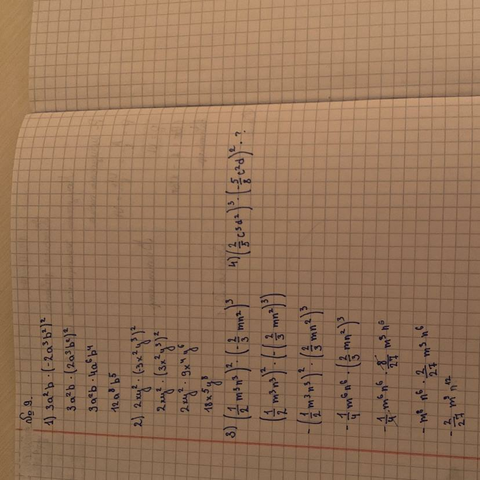 № 9.
1) 3a²b · (-2a³b²)²
3a²b · (2a³b²)²
3a²b · 4a⁶b⁴
12a⁸b⁵
2) 2xy² · (3x²y³)²
2xy² · (3x²y³)²
2xy² · 9x⁴y⁶
18x⁵y⁸
3) (1/2 m³n³)² · (-2/3 mn²)³
(1/2 m³n³)² · (-(2/3 mn²)³)
-(1/2 m³n³)² · (2/3 mn²)³
-1/4 m⁶n⁶ · (2/3 mn²)³
-1/4 m⁶n⁶ · 8/27 m³n⁶
-m⁶n⁶ · 2/27 m³n⁶
-2/27 m⁹n¹²
4) (2/5 c³d²)³ · (-5/8 c²d)² · ?